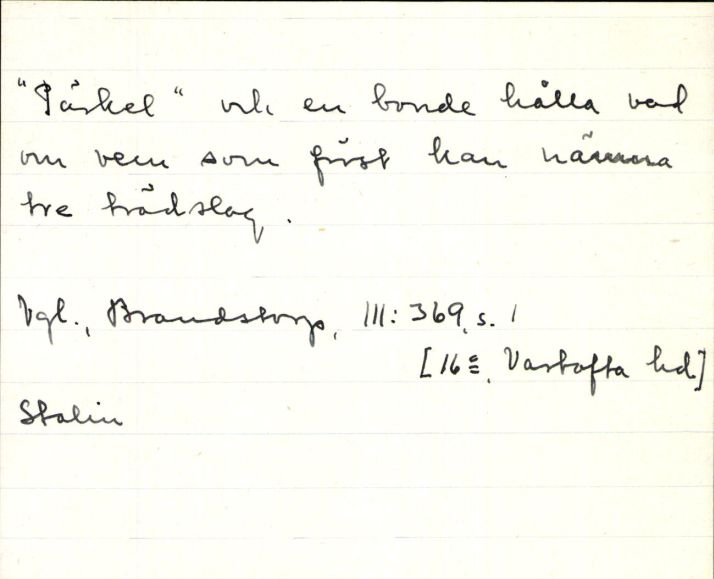 "Påskel" och en bonde hålla vad
om vem som först kan nämna
tre trädslag.
Vgl., Brandstorp, III: 369, s. 1
[16 Vartofta hd.]
Stalin